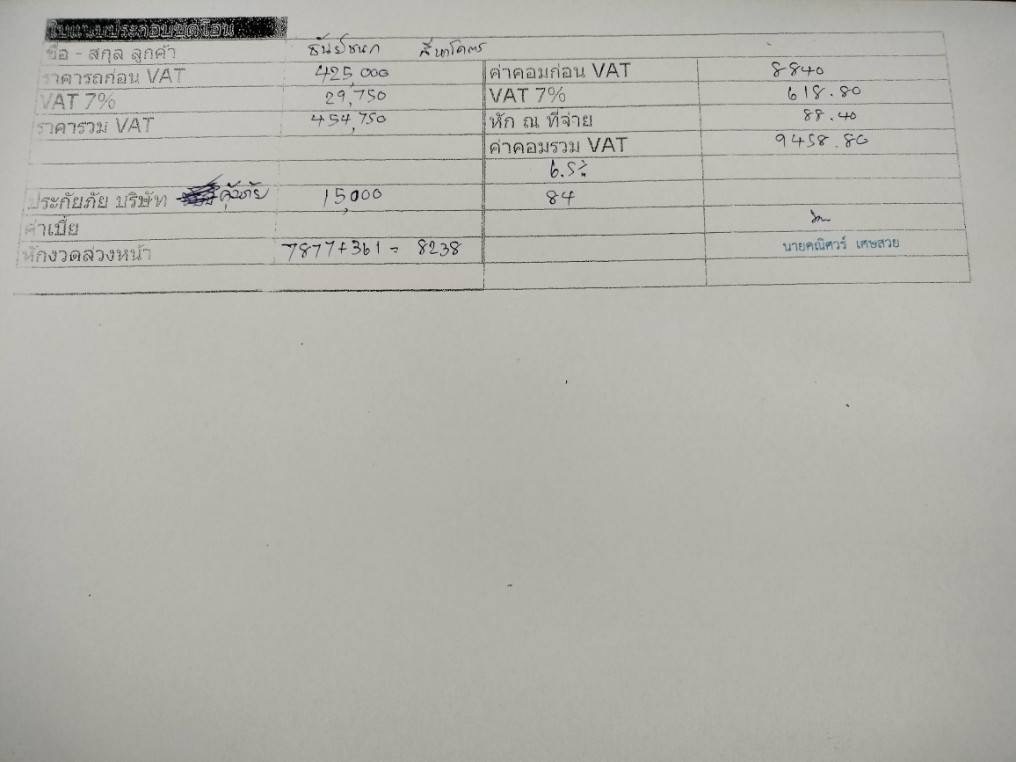 ใบแนบประกอบชุดโอน
ชื่อ - สกุล ลูกค้า ธันย์ชนก สีหาโคตร
ราคารถก่อน VAT 425,000 ค่าคอมก่อน VAT 8840
VAT 7% 29,750 VAT 7% 618.80
ราคารวม VAT 454,750 หัก ณ ที่จ่าย 88.40
ค่าคอมรวม VAT 9458.80
6.5%
ประกัยภัย บริษัท คุ้มภัย 15,000 84
ค่าเบี้ย
หักงวดล่วงหน้า 7877+361 = 8238 นายคณิศวร์ เศษสวย